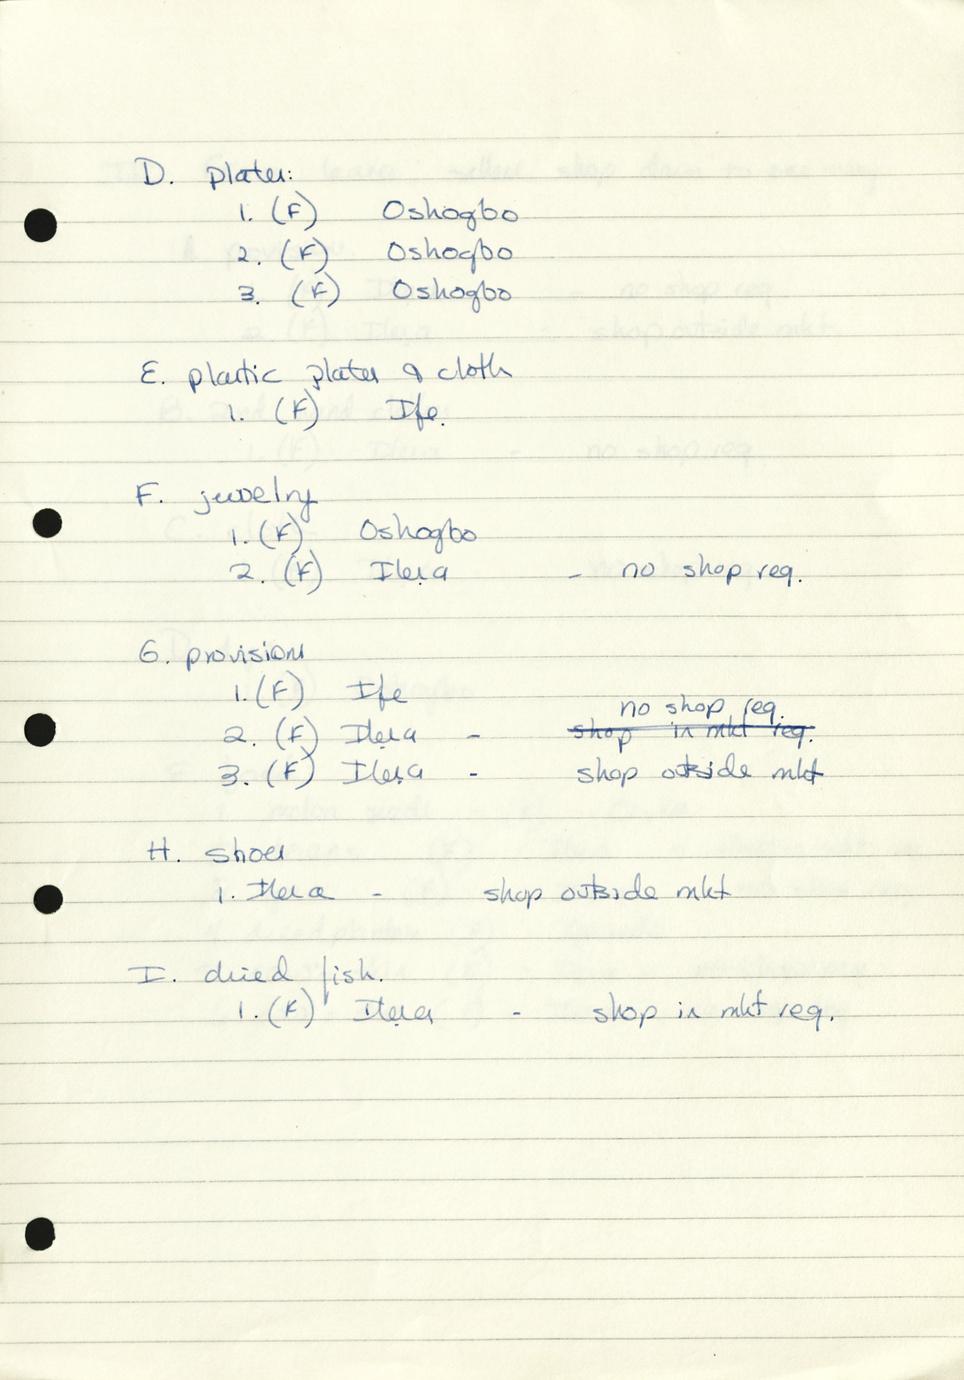 D. plates:
1. (F) Oshogbo
2. (F) Oshogbo
3. (F) Oshogbo
E. plastic plates & cloth
1. (F) Ife.
F. jewelry
1. (F) Oshogbo
2. (F) Ileṣa - no shop req.
G. provisions
1. (F) Ife
no shop req.
2. (F) Ileṣa - shop in mkt req.
3. (F) Ileṣa - shop outside mkt
H. shoes
1. Ilesa - shop outside mkt
I. dried fish.
1. (F) Ileṣa - shop in mkt req.